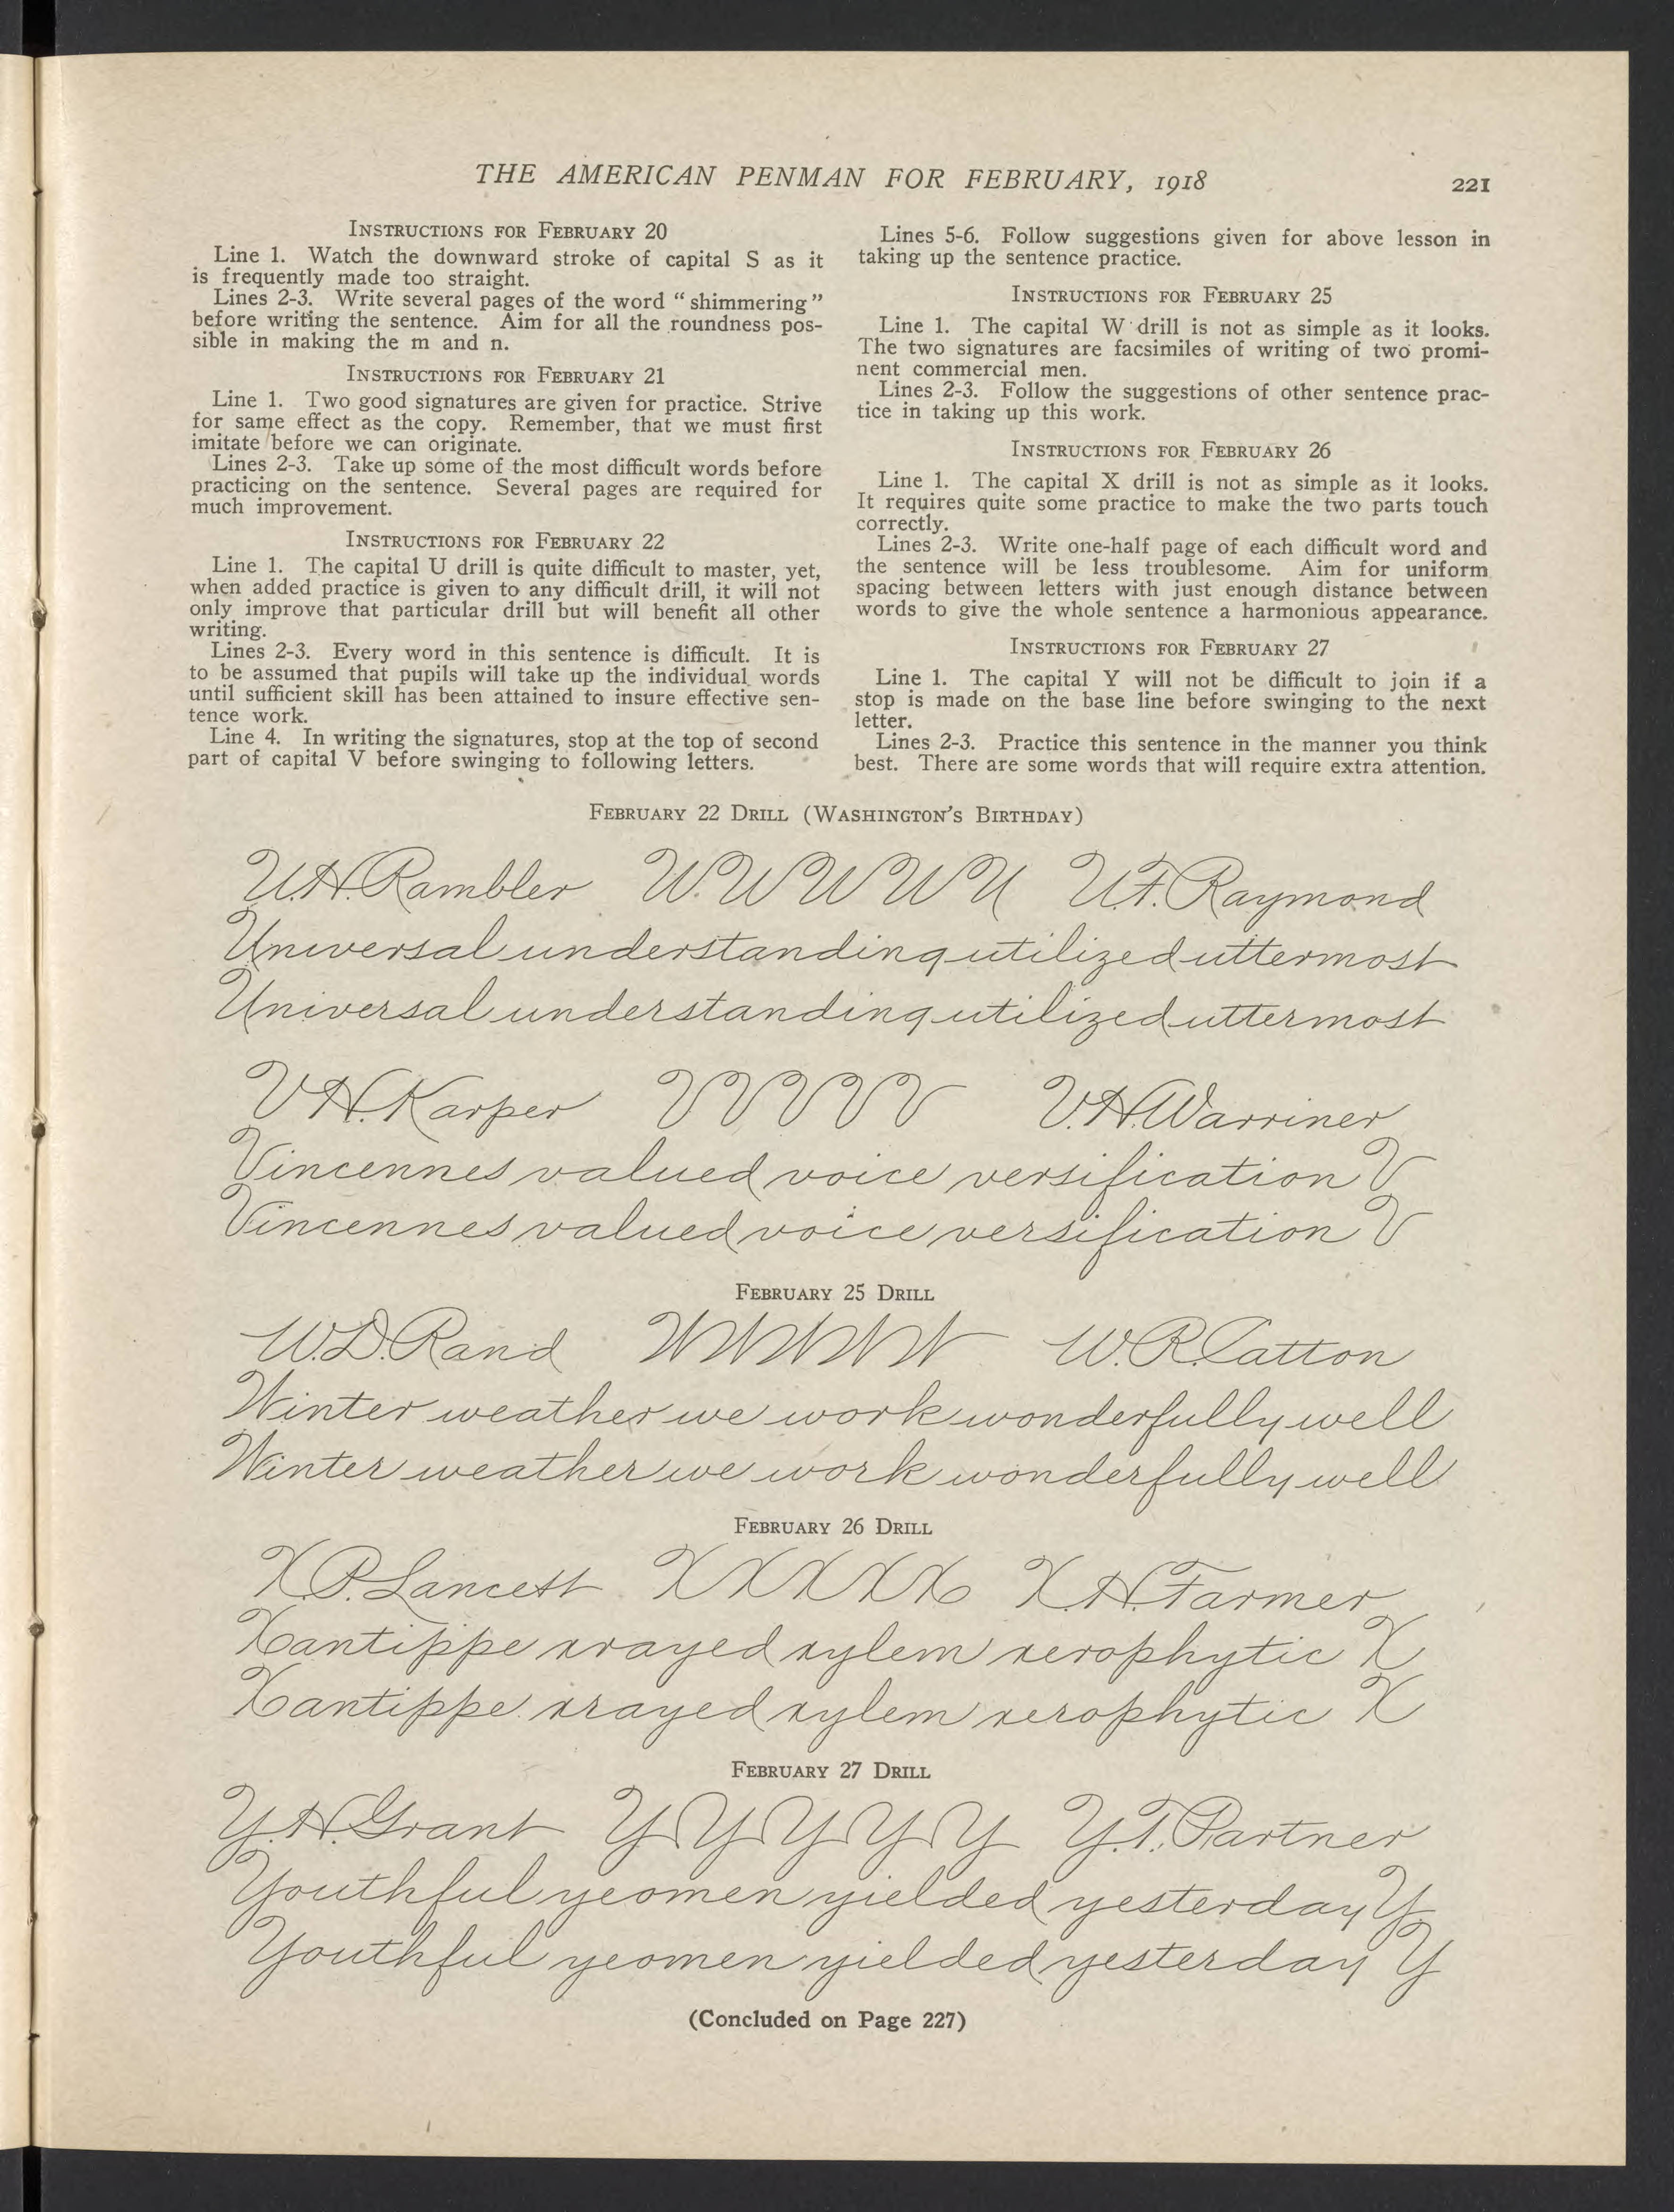 THE AMERICAN PENMAN FOR FEBRUARY, 1918
221
INSTRUCTIONS FOR FEBRUARY 20
Line 1. Watch the downward stroke of capital S as it
is frequently made too straight.
Lines 2-3. Write several pages of the word "shimmering"
before writing the sentence. Aim for all the roundness pos-
sible in making the m and n.
INSTRUCTIONS FOR FEBRUARY 21
Line 1. Two good signatures are given for practice. Strive
for same effect as the copy. Remember, that we must first
imitate before we can originate.
Lines 2-3. Take up some of the most difficult words before
practicing on the sentence. Several pages are required for
much improvement.
INSTRUCTIONS FOR FEBRUARY 22
Line 1. The capital U drill is quite difficult to master, yet,
when added practice is given to any difficult drill, it will not
only improve that particular drill but will benefit all other
writing.
Lines 2-3. Every word in this sentence is difficult. It is
to be assumed that pupils will take up the individual words
until sufficient skill has been attained to insure effective sen-
tence work.
Line 4. In writing the signatures, stop at the top of second
part of capital V before swinging to following letters.
Lines 5-6. Follow suggestions given for above lesson in
taking up the sentence practice.
INSTRUCTIONS FOR FEBRUARY 25
Line 1. The capital W drill is not as simple as it looks.
The two signatures are facsimiles of writing of two promi-
nent commercial men.
Lines 2-3. Follow the suggestions of other sentence prac-
tice in taking up this work.
INSTRUCTIONS FOR FEBRUARY 26
Line 1. The capital X drill is not as simple as it looks.
It requires quite some practice to make the two parts touch
correctly.
Lines 2-3. Write one-half page of each difficult word and
the sentence will be less troublesome. Aim for uniform
spacing between letters with just enough distance between
words to give the whole sentence a harmonious appearance.
INSTRUCTIONS FOR FEBRUARY 27
Line 1. The capital Y will not be difficult to join if a
stop is made on the base line before swinging to the next
letter.
Lines 2-3. Practice this sentence in the manner you think
best. There are some words that will require extra attention.
FEBRUARY 22 DRILL (WASHINGTON'S BIRTHDAY)
U.H. Rambler U.U U U U U.F. Raymond
Universal understanding utilized uttermost
Universal understanding utilized uttermost
V.H. Karper V V V V V V.H. Warriner
Vincennes valued voice versification V
Vincennes valued voice versification V
FEBRUARY 25 DRILL
W.D. Rand W W W W W W.R. Catton
Winter weather we work wonderfully well
Winter weather we work wonderfully well
FEBRUARY 26 DRILL
X.P. Lancett X X X X X X.H. Farmer
Xantippe xrayed xylem xerophytic X
Xantippe xrayed xylem xerophytic X
FEBRUARY 27 DRILL
Y.H. Grant Y Y Y Y Y Y.T. Partner
Youthful yeomen yielded yesterday Y
Youthful yeomen yielded yesterday Y
(Concluded on Page 227)